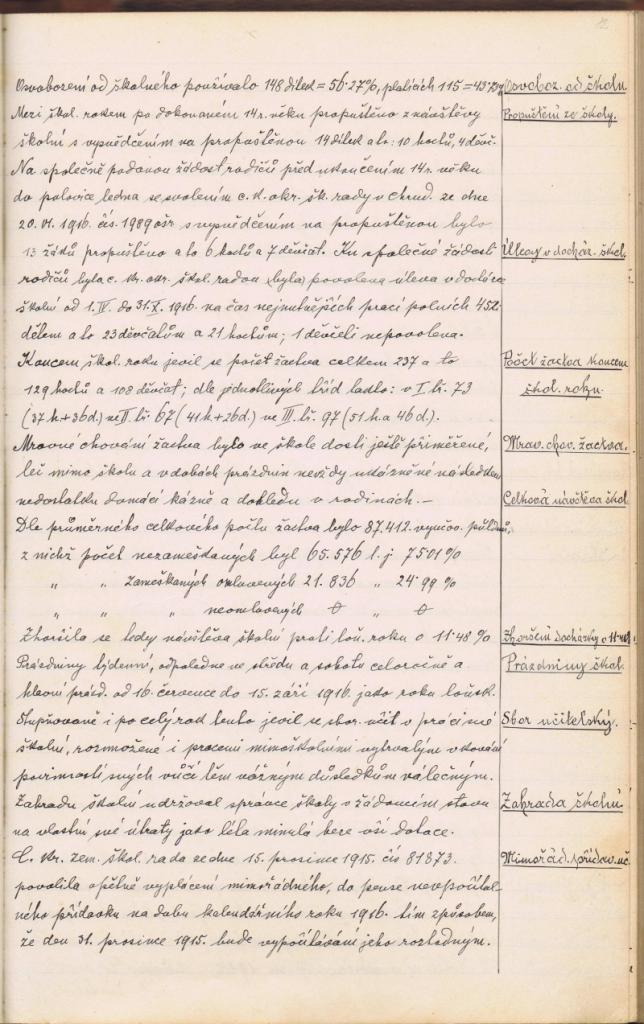 12
Osvobození od školného používalo 148 dítek = 56·27%, platících 115 = 43·73% Osvoboz. od školn.
Mezi škol. rokem po dokonaném 14 r. věku propuštěno z návštěvy Propuštění ze školy.
školní s vysvědčením na propuštěnou 14 dítek a to: 10 hochů, 4 děvč.
Na společně podanou žádost rodičů před ukončením 14 r. věku
do polovice ledna se svolením c. k. okr. šk. rady v Chrud. ze dne
20. VI. 1916. čís. 1989 s vysvědčením na propuštěnou bylo
13 žáků propuštěno a to 6 hochů a 7 děvčat. Ku společné žádosti Úlevy v docház. škol.
rodičů byla c. kr. okr. škol. radou (byla) povolena úleva v docház
školní od 1. IV. do 31. X. 1916. na čas nejnutnějších prací polních
dětem a to 23 děvčatům a 21 hochům; 1 děvčeti nepovolena.
Koncem škol. roku jevil se počet žactva celkem 237 a to Počet žactva koncem
129 hochů a 108 děvčat; dle jednotlivých tříd takto: v I. tř. 73 škol. roku.
(37 h. + 36 d.) ve II. tř. 67 (41 h. + 26 d.) ve III. tř. 97 (51 h. a 46 d.).
Mravné chování žactva bylo ve škole dosti ještě přiměřené, Mrav. chov. žactva.
leč mimo školu a v dobách prázdnin nevždy ukázněné následkem
nedostatku domácí kázně a dohledu v rodinách. – Celková návštěva škol.
Dle průměrného celkového počtu žactva bylo 87.412 vyučov. půldnů,
z nichž počet nezameškaných byl 65.576 t. j. 75·01%
" " zameškaných omluvených 21.836 " 24·99%
" " " neomluvených 0 " 0
Zhoršila se tedy návštěva školní proti loň. roku o 11·48% Zhoršení docházky o 11·48%
Prázdniny týdenní, odpoledne ve středu a sobotu celoročně a Prázdniny škol.
hlavní prázd. od 16. července do 15. září 1916. jako roku loňsk.
Stupňovaně i po celý rok tento jevil se sbor učit. v práci své Sbor učitelský.
školní, rozmnožené i pracemi mimoškolními vytrvalým v konání
povinností svých vůči těm vážným důsledkům válečným.
Zahradu školní udržoval správce školy v žádoucím stavu Zahrada školní
na vlastní své útraty jako léta minulá beze vší dotace.
C. kr. zem. škol. rada ze dne 15. prosince 1915. čís 81873. Mimořád. přídav. uč.
povolila opětně vyplácení mimořádného, do pense nevpočítatel-
ného přídavku na dobu kalendářního roku 1916. tím způsobem,
že den 31. prosince 1915. bude vypočítávání jeho rozhodným.